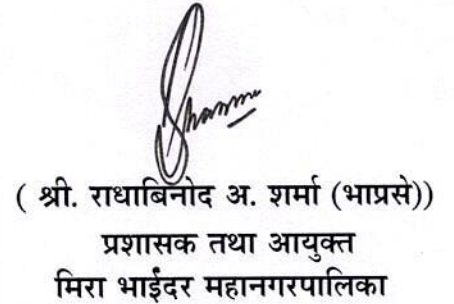 Sharma
( श्री. राधाबिनोद अ. शर्मा (भाप्रसे))
प्रशासक तथा आयुक्त
मिरा भाईंदर महानगरपालिका